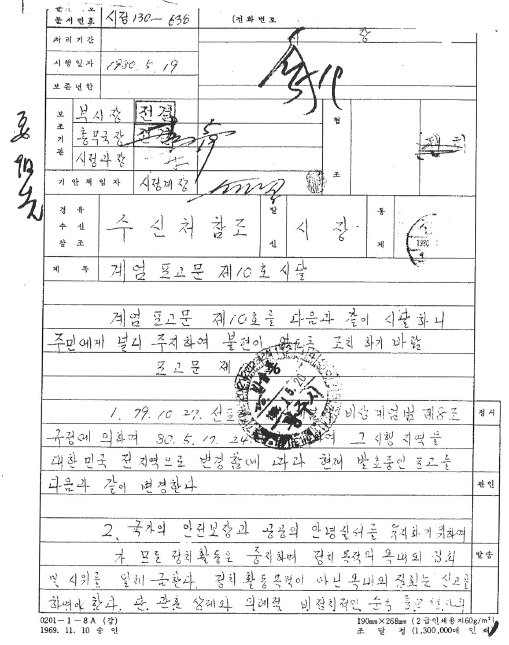 문서번호 시정130-638 (전화번호
처리기간 장
시행일자 1980. 5. 19
보존년한
보조기관 부시장 전결 협조
총무국장 전결
시정과장
기안책임자 시정계장
경유 수신 참조 수신처참조 발신 시장 통제
제목 계엄 포고문 제10호 시달
계엄 포고문 제10호를 다음과 같이 시달하니
주민에게 널리 주지하여 불편이 없도록 조치하기 바람
포고문 제
1. 79. 10. 27. 선포 비상계엄법 제8조
규정에 의하여 80. 5. 17. 24 그 시행지역을
대한민국 전지역으로 변경함에 따라 현재 발효중인 포고를
다음과 같이 변경한다
정서
관인
발송
2. 국가의 안전보장과 공공의 안녕질서를 유지하기 위하여
가 모든 정치활동을 중지하며 정치목적의 옥내외 집회
및 시위를 일체 금한다. 정치활동목적이 아닌 옥내외 집회는 신고를
하여야 한다. 단, 관혼상제와 의례적 비정치적인 순수 종교행사의
0201-1-8A (갑)
1969. 11. 10 승인
190mm×268mm (2급인쇄용지60g/m²)
조달청 (1,300,000매 인쇄)